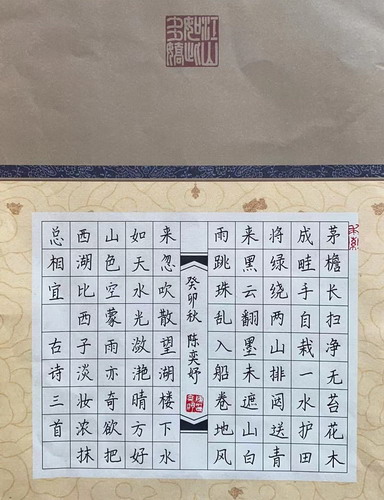 江山如此多嬌
茅檐长扫净无苔花木
成畦手自栽一水护田
将绿绕两山排闼送青
来黑云翻墨未遮山白
雨跳珠乱入船卷地风
癸卯秋 陈奕妤
来忽吹散望湖楼下水
如天水光潋滟晴方好
山色空蒙雨亦奇欲把
西湖比西子淡妆浓抹
总相宜 古诗三首